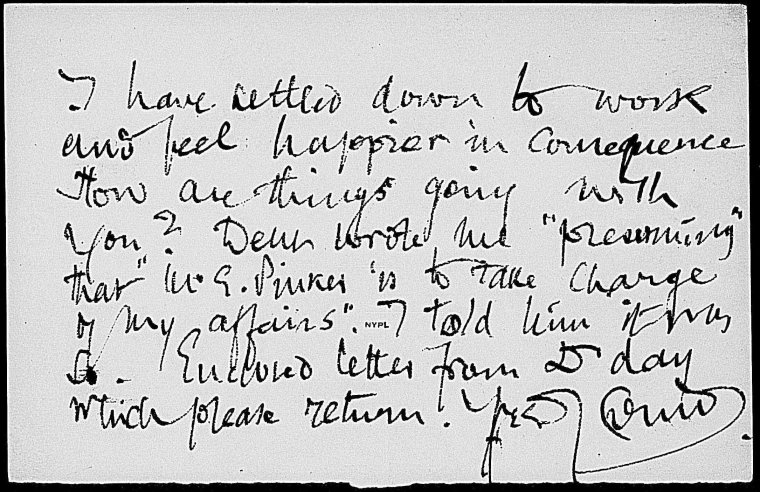 I have settled down to work
and feel happier in consequence
How are things going with
you? Dent wrote me "presuming"
that "Mr E. Pinker is to take charge
of my affairs". NYPL I told him it was
so. Enclosed letter from Dday
which please return. Yrs